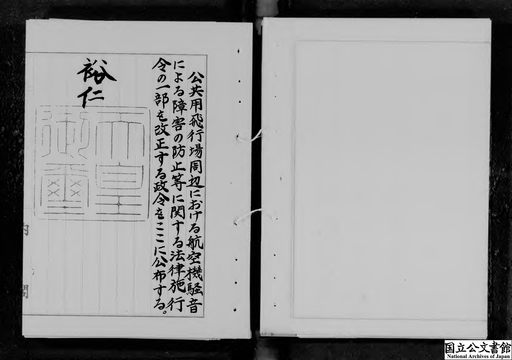 公共用飛行場周辺における航空機騒音
による障害の防止等に関する法律施行
令の一部を改正する政令をここに公布する。
裕仁
天皇
御璽
内閣
国立公文書館
National Archives of Japan